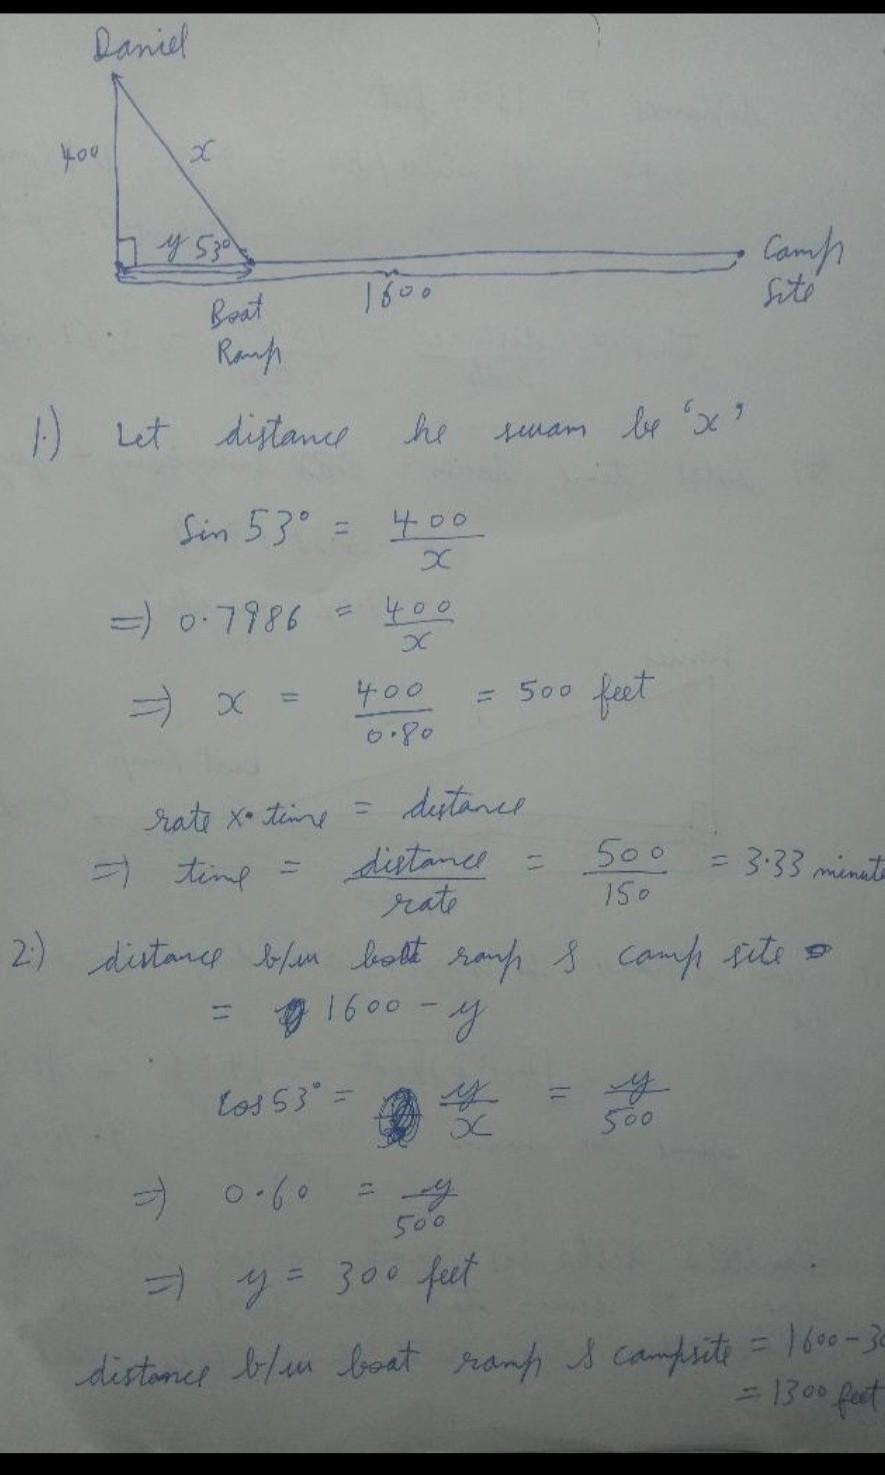 Daniel
400
x
y 53°
Camp
Site
1600
Boat
Ramp
1.) Let distance he swam be 'x'
Sin 53° = 400/x
=> 0.7986 = 400/x
=> x = 400/0.80 = 500 feet
rate × time = distance
=> time = distance/rate = 500/150 = 3.33 minute
2.) distance b/w boat ramp & camp site
= 1600 - y
Cos 53° = y/x = y/500
=> 0.60 = y/500
=> y = 300 feet
distance b/w boat ramp & campsite = 1600 - 30
= 1300 feet